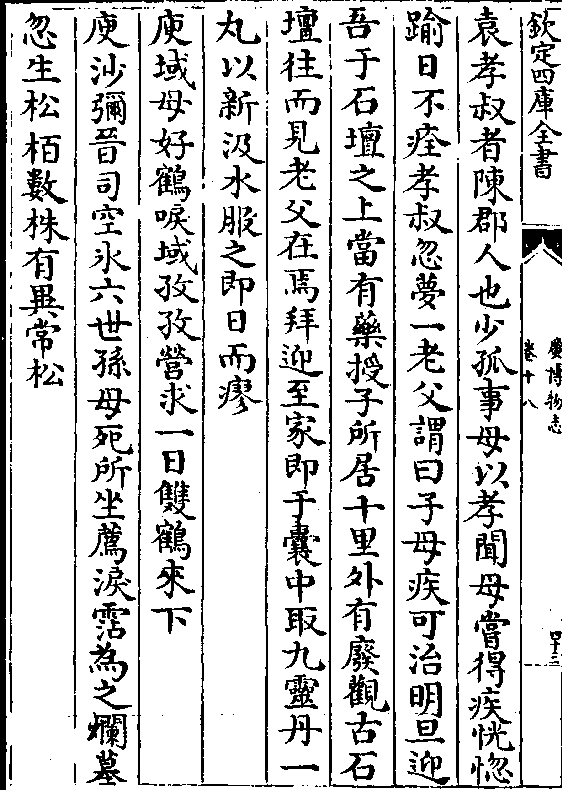 欽定四庫全書
廣博物志
卷十八
四十三
袁孝叔者陳郡人也少孤事母以孝聞母嘗得疾恍惚
踰日不痊孝叔忽夢一老父謂曰子母疾可治明旦迎
吾于石壇之上當有藥授子所居十里外有廢觀古石
壇往而見老父在焉拜迎至家即于囊中取九靈丹一
丸以新汲水服之即日而瘳
庾域母好鶴唳域孜孜營求一日雙鶴來下
庾沙彌晉司空氷六世孫母死所坐薦淚霑為之爛墓
忽生松栢數株有異常松